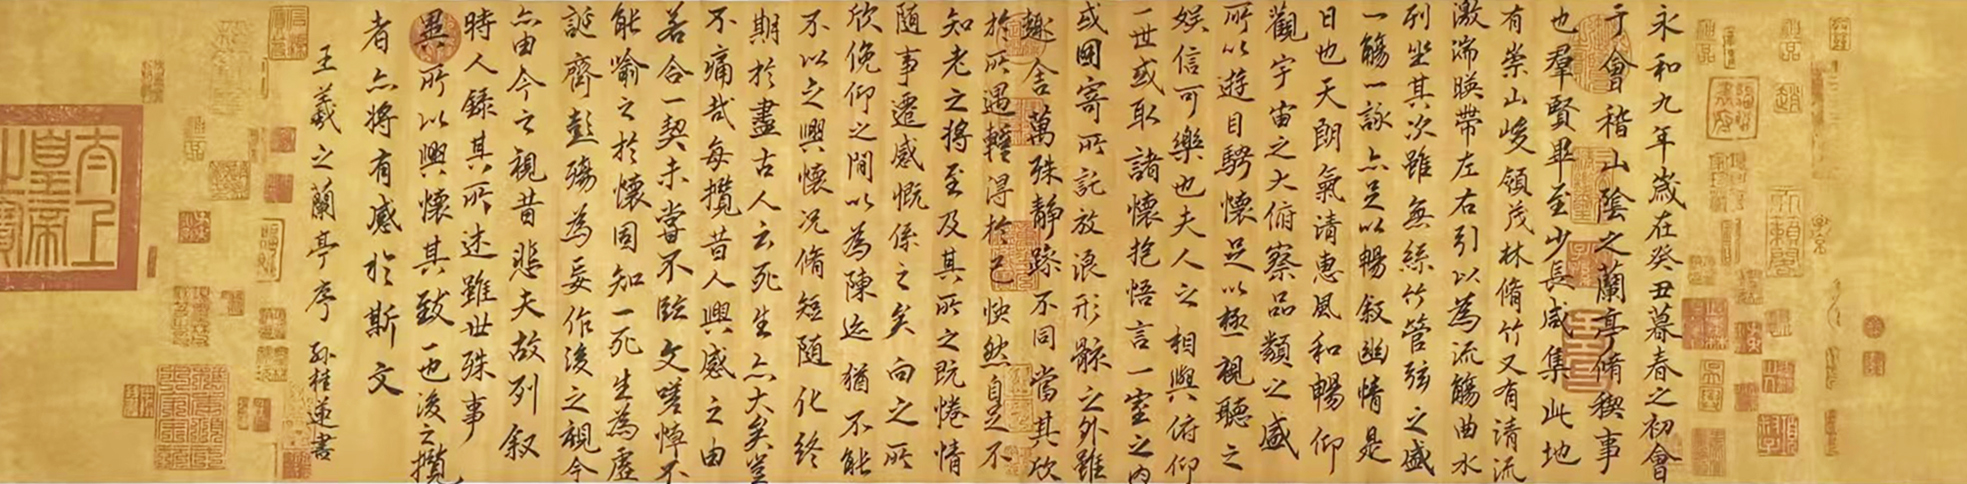 永和九年歲在癸丑暮春之初會
于會稽山陰之蘭亭脩稧事
也羣賢畢至少長咸集此地
有崇山峻領茂林脩竹又有清流
激湍暎帶左右引以為流觴曲水
列坐其次雖無絲竹管弦之盛
一觴一詠亦足以暢叙幽情是
日也天朗氣清惠風和暢仰
觀宇宙之大俯察品類之盛
所以遊目騁懷足以極視聽之
娱信可樂也夫人之相與俯仰
一世或取諸懷抱悟言一室之內
或因寄所託放浪形骸之外雖
趣舍萬殊靜躁不同當其欣
於所遇蹔得於己怏然自足不
知老之將至及其所之既惓情
隨事遷感慨係之矣向之所
欣俛仰之間以為陳迹猶不能
不以之興懷況脩短隨化終
期於盡古人云死生亦大矣豈
不痛哉每攬昔人興感之由
若合一契未嘗不臨文嗟悼不
能喻之於懷固知一死生為虛
誕齊彭殤為妄作後之視今
亦由今之視昔悲夫故列叙
時人錄其所述雖世殊事
異所以興懷其致一也後之攬
者亦將有感於斯文
王羲之蘭亭序 孙桂蓮書
太上皇帝之寶